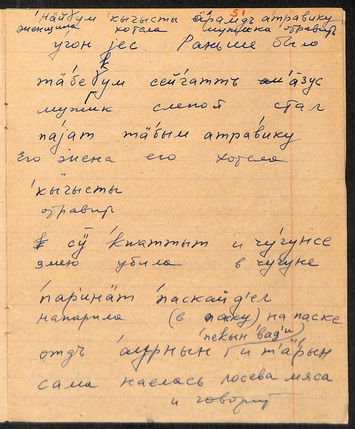 51
нӓйӷум кычысты ӣрамдъ атравику
женщина хотела мужика отравить
угон jес Раньше было
тӓбеӷум сейгатть азус
мужик слепой стал
паjат тӓбым атравику
Его жена его хотела
кычысты
отравить
сӱ кwаттыт и чугунсе
змею убила в чугуне
паринӓт паскайд'ел
напарила (в ) на паске
(пекын вад'и)
отдъ аурнын
сама наелась лосева мяса
и говорит